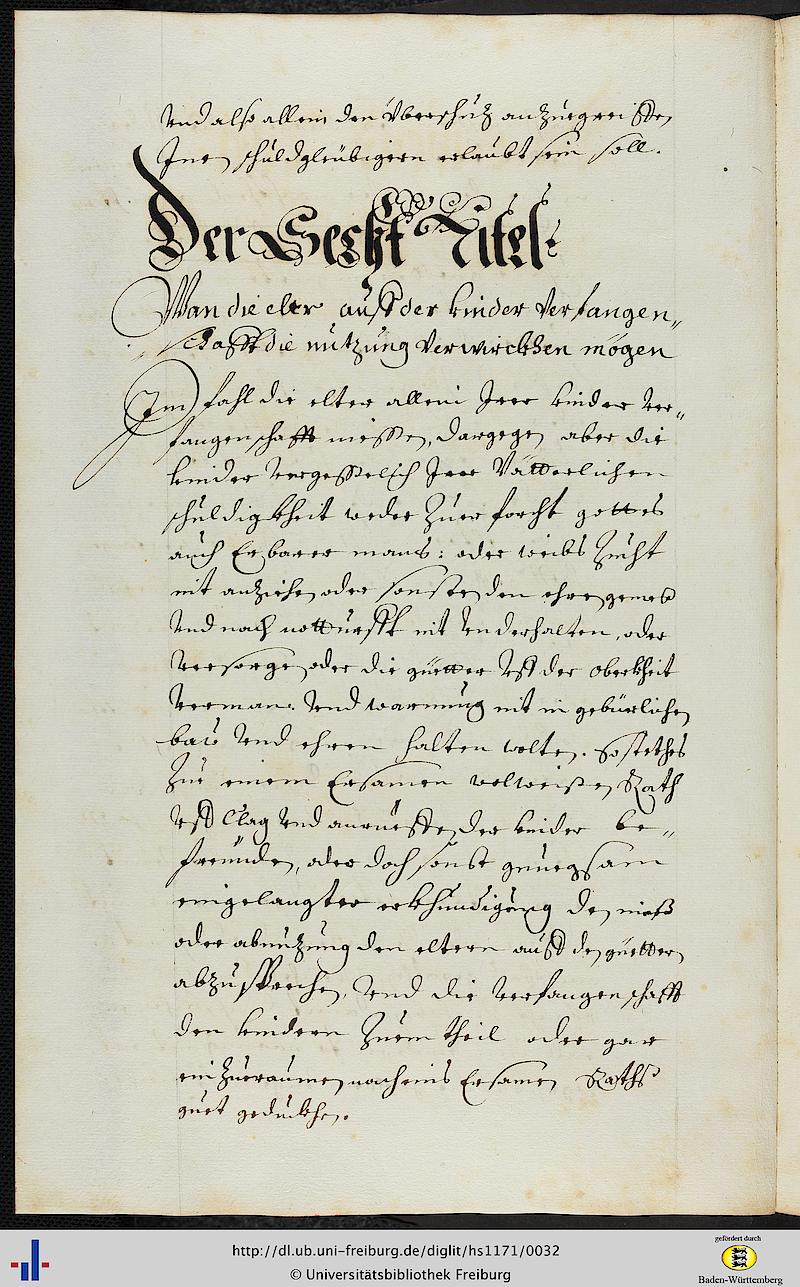 Vnd also allein den Vberschutz anzuegreiffen
Inen schuldgleübigern erlaubt sein soll.
Der Sechst Titel
Wan die elter auff der kinder Verfangen„
schafft die nutzung Verwirckhen mögen
Im fahl die elter allein Irer kinder Ver„
fangenschafft niessen, dargegen aber die
kinder Vergesselich Irer Vätterlichen
schuldigkheit weder Zuer forcht gottes
auch Erbarer mans: oder weibs Zucht
nit anziehen oder sonsten den ehren gemeß
Vnd nach notturfft nit Vnderhalten, oder
Versorgen oder die güetter Vff der oberkheit
Verman: Vnd warnung nit in gebürlichen
baw Vnd ehren halten wolten. So stethes
Zue einem Ersamen wolweisen Rath
Vff Clag Vnd anrüeffen der kinder be„
freünden, oder doch sonst genuegsam
eingelangter erkhundigung den nieß
oder abnutzung den eltern auff den güettern
abzusprechen, Vnd die Verfangenschafft
den kindern Zuem theil oder gar
einZueraumen nach eins Ersamen Raths
guet gedunckhen.
http://dl.ub.uni-freiburg.de/diglit/hs1171/0032
© Universitätsbibliothek Freiburg
gefördert durch
Baden-Württemberg